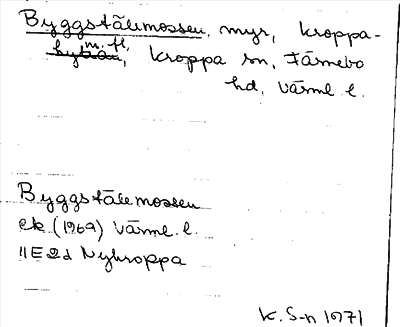 Byggstälemossen, myr, Kroppa-
hyttan m.fl., Kroppa sn, Färnebo
hd, Värml. l.
Byggstälemossen
ek. (1969) Värml. l.
11E2d Nykroppa
K. S-n 1971